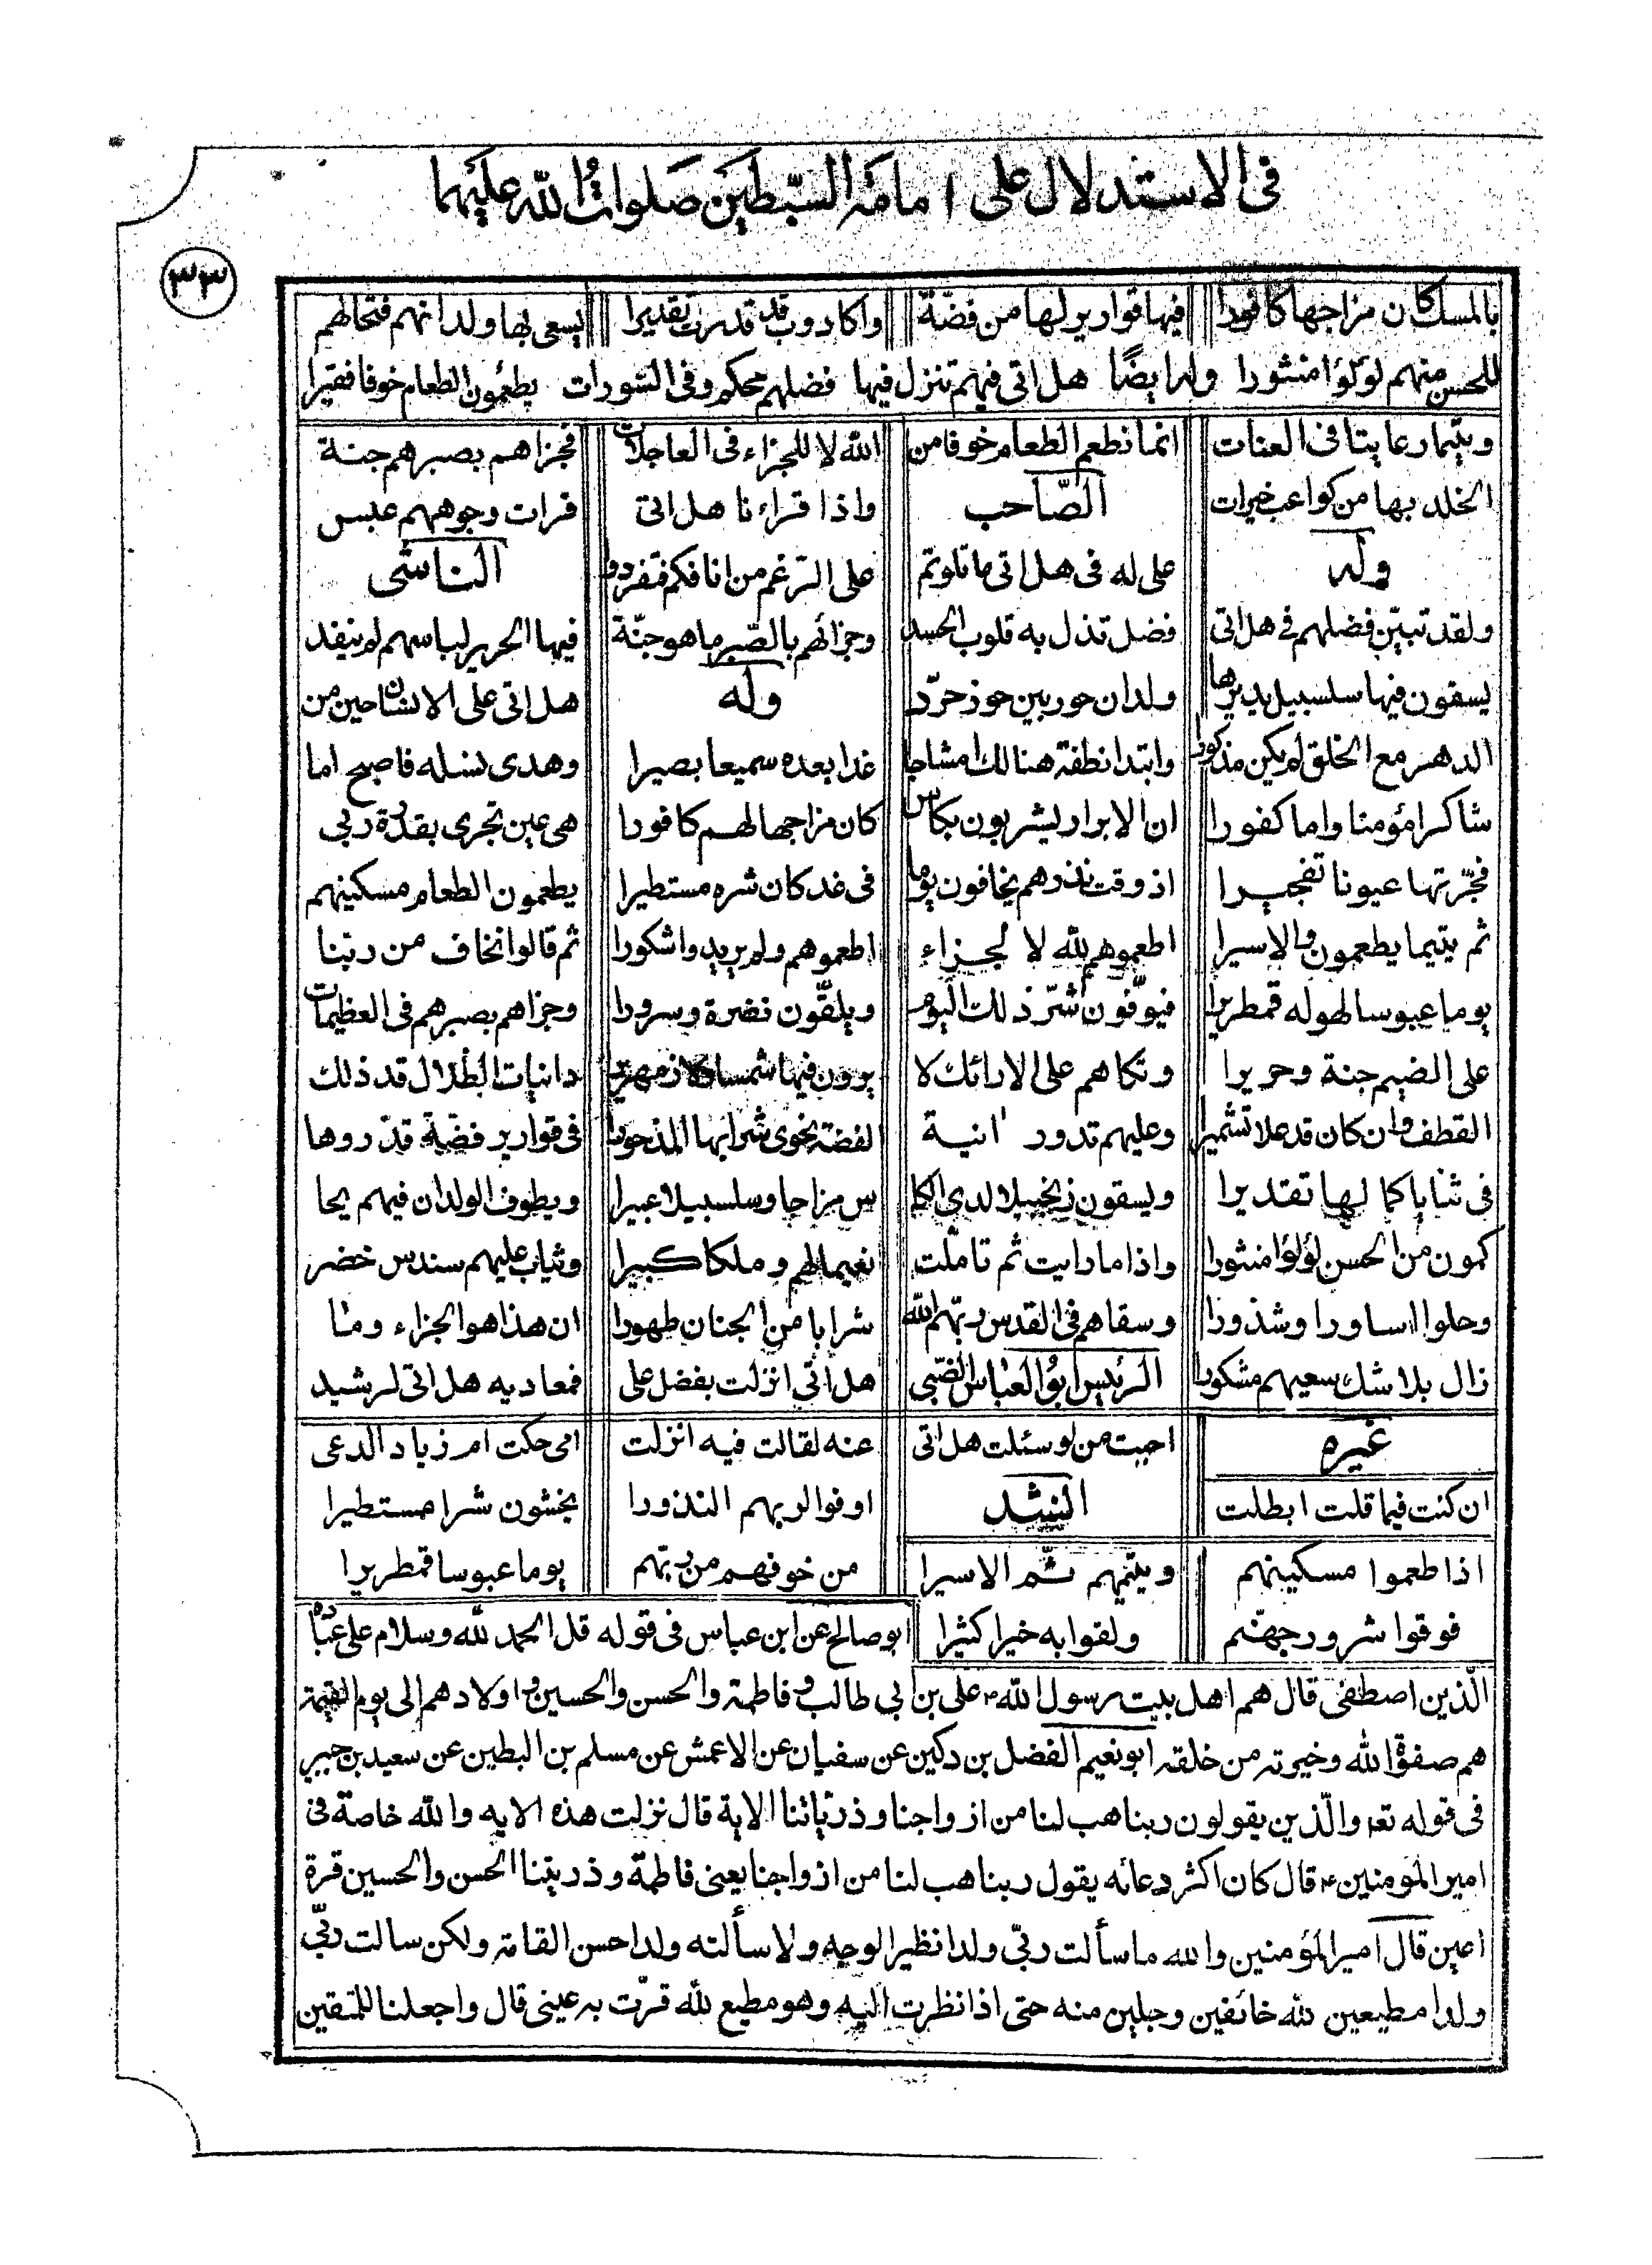 فى الاستدلال على امامة السّبطين صلوات الله عليهما
٣٣
بالمسك كان مزاجها كافورا فيها قوارير لها من فضّة واكاروب قد قدرت تقديرا يسعى بها ولدانهم فتخالهم
للحسن منهم لؤلؤا منثورا وله ايضًا هل اتى فيهم تنزل فيها فضلهم محكم وفى السّورات يطعمون الطعام خوفا فقيرا
ويتيما رعايتا فى العنات انما نطعم الطعام خوفا من الله لا للجزاء فى العاجلات فجزاهم بصبرهم جنة
الخلد بها من كواعب خيرات الصّاحب واذا قراءنا هل اتى قرات وجوههم عبس
وله على له فى هل اتى ما تلوتم على الرّغم من انافكم فتفردوا الناشى
ولقد تبيّن فضلهم فى هل اتى فضل تذل به قلوب الحسد وجزائهم بالصّبر ما هو جنّة فيها الحرير لباسهم لم ينفد
يسقون فيها سلسبيل يديرها ولدان حور بين حوذ خرّد وله هل اتى على الانسان حين من
الدهر مع الخلق لم يكن مذكورا وابتدا نطفة هنالك امشاجا غدا بعده سميعا بصيرا وهدى نسله فاصبح اما
شاكرا مؤمنا واما كفورا ان الابرار يشربون بكاس كان مزاجها لهم كافورا هى عين تجرى بقدرة ربى
فجّرتها عيونا تفجيرا اذ وقت نذرهم يخافون يوما فى غد كان شره مستطيرا يطعمون الطعام مسكينهم
ثم يتيما يطعمون والاسيرا اطعموهم لله لا لجزاء اطعموهم ولم يريدوا شكورا ثم قالوا نخاف من ربّنا
يوما عبوسا لهوله قمطريرا فيوقّون شرّ ذلك اليوم ويلقّون نضرة وسرورا وجزاهم بصبرهم فى العظيمات
على الضيم جنة وحريرا وتكاهم على الارائك لا يرون فيها شمسا ولا زمهريرا دانيات الظلال قد ذلك
القطف وان كان قد علا تشميرا وعليهم تدور انية الفضة يحوى شرابها المذخورا فى قوارير فضّة قدّروها
فى ثناياكما لها تقديرا ويسقون زنجبيلا لدى الكا س مزاجا وسلسبيلا عبيرا ويطوف الولدان فيهم يحا
كمون من الحسن لؤلؤا منثورا واذا ما رايت ثم تاملت نعيما لهم وملكا كبيرا وثياب عليهم سندس خضر
وحلوا اساورا وشذورا وسقاهم فى القدس ربّهم الله شرابا من الجنان طهورا ان هذا هو الجزاء وما
زال بلا شك سعيهم مشكورا الرئيس ابو العباس الضّبّى هل اتى انزلت بفضل على فمعاديه هل اتى لرشيد
غيره احببت من لو سئلت هل اتى عنه لقالت فيه انزلت امى حكت ام زياد الدعى
ان كنت فيما قلت ابطلت انشد اوفوا لربهم النذورا يخشون شرا مستطيرا
اذا طعموا مسكينهم ويتيمهم ثمّ الاسيرا من خوفهم من ربّهم يوما عبوسا قمطريرا
فوقوا شرور جهنّم ولقوا به خيرا كثيرا ابو صالح عن ابن عباس فى قوله قل الحمد لله وسلام على عباده
الّذين اصطفى قال هم اهل بيت رسول الله على بن ابى طالب وفاطمة والحسن والحسين واولادهم الى يوم القيمة
هم صفوة الله وخيرته من خلقه ابو نعيم الفضل بن دكين عن سفيان عن الاعمش عن مسلم بن البطين عن سعيد بن جبير
فى قوله تعه والّذين يقولون ربنا هب لنا من ازواجنا وذريّاتنا الاية قال نزلت هذه الايه والله خاصة فى
امير المؤمنين ع قال كان اكثر دعائه يقول ربنا هب لنا من ازواجنا يعنى فاطمة وذريتنا الحسن والحسين قرة
اعين قال امير المؤمنين والله ما سألت ربّى ولدا نظير الوجه ولا سألته ولدا حسن القامة ولكن سالت ربّى
ولدا مطيعين لله خائفين وجلين منه حتى اذا نظرت اليه وهو مطيع لله قرّت به عينى قال واجعلنا للمتقين